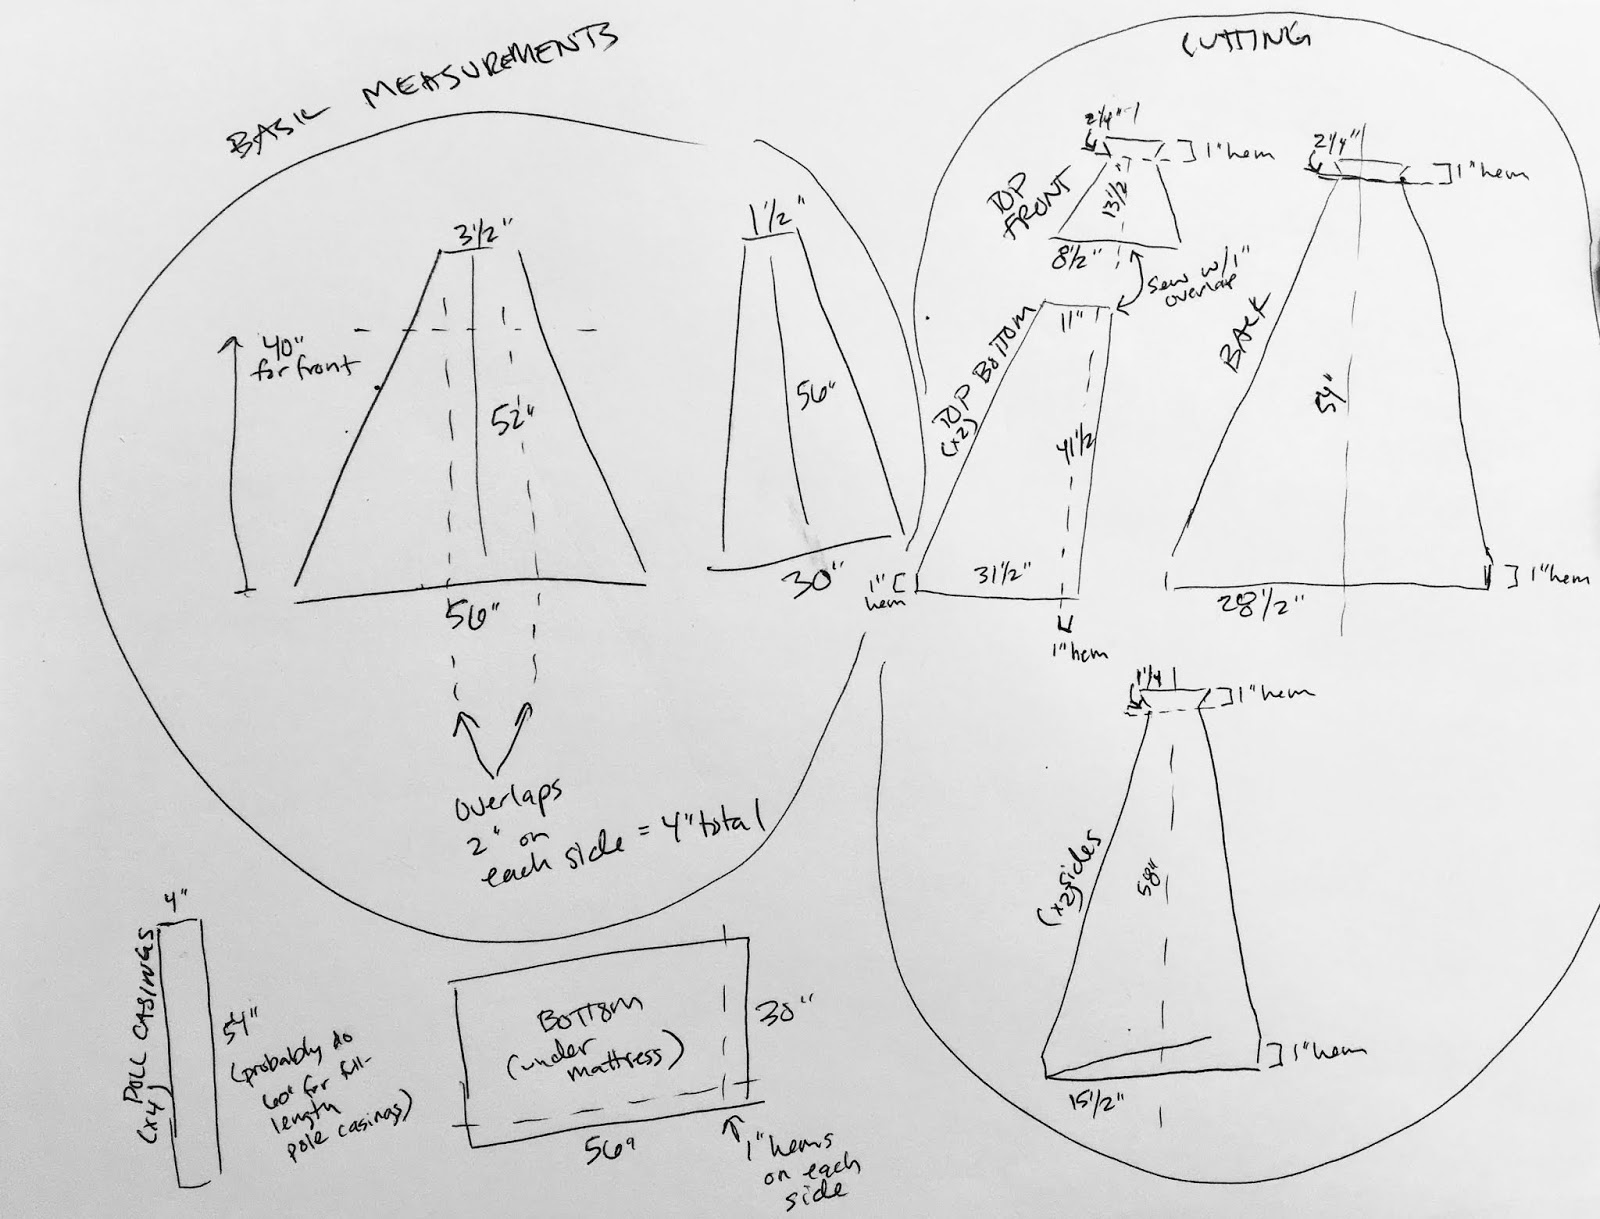 BASIC MEASUREMENTS
3½"
1½"
40"
for front
52"
56"
56"
30"
overlaps
2" on
each side = 4" total
CUTTING
2¼"
1" hem
TOP
FRONT
13½"
8½"
Sew w/1"
overlap
TOP BOTTOM
(x2)
11"
41½
31½"
1"
hem
1" hem
2¼"
1" hem
BACK
54"
28½"
1" hem
1¼
1" hem
(x2) sides
58"
15½"
1" hem
4"
POLL CASINGS
(x4)
54"
(probably do
60" for full-
length
pole casings)
BOTTOM
(under
mattress)
30"
56"
1" hems
on each
side